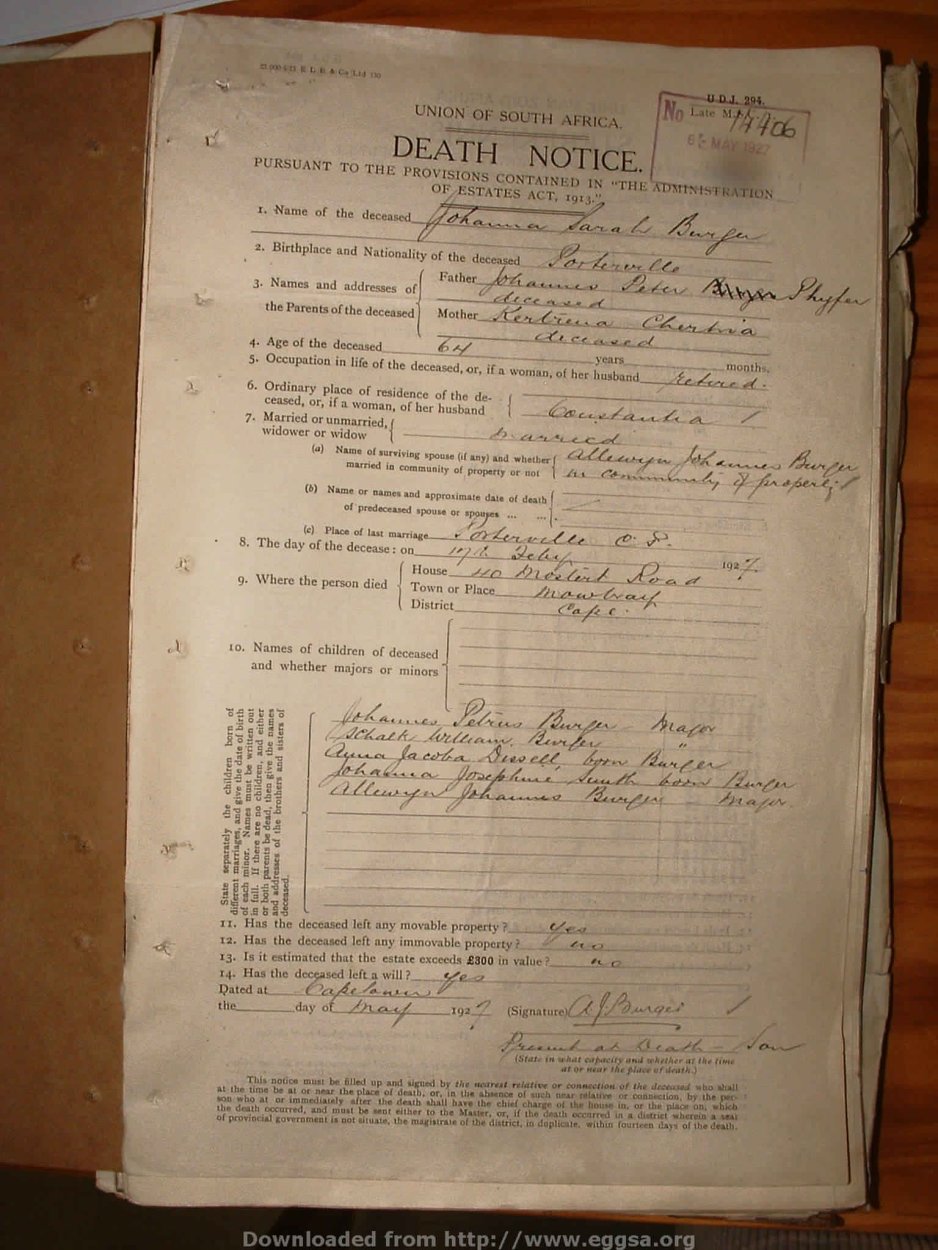 U.D.J. 294.
UNION OF SOUTH AFRICA.
No Late M 14406
6 MAY 1927
DEATH NOTICE.
PURSUANT TO THE PROVISIONS CONTAINED IN "THE ADMINISTRATION
OF ESTATES ACT, 1913."
1. Name of the deceased Johanna Sarah Burger
2. Birthplace and Nationality of the deceased Porterville
3. Names and addresses of the Parents of the deceased
Father Johannes Peter Burger Phyfer
deceased
Mother
deceased
4. Age of the deceased 64 years months.
5. Occupation in life of the deceased, or, if a woman, of her husband retired.
6. Ordinary place of residence of the de-
ceased, or, if a woman, of her husband Constantia
7. Married or unmarried,
widower or widow married
(a) Name of surviving spouse (if any) and whether Allewyn Johannes Burger
married in community of property or not in community of property
(b) Name or names and approximate date of death
of predeceased spouse or spouses ... ...
(c) Place of last marriage Porterville C.P.
8. The day of the decease: on 17th Feby 1927.
9. Where the person died
House 40 Mostert Road
Town or Place Mowbray
District Cape.
10. Names of children of deceased
and whether majors or minors
State separately the children born of
different marriages, and give the date of birth
of each minor. Names must be written out
in full. If there are no children, and either
or both parents be dead, then give the names
and addresses of the brothers and sisters of
deceased.
Johannes Petrus Burger Major
Schalk William Burger "
Anna Jacoba Dissell, born Burger
Johanna Josephine Smith born Burger
Allewyn Johannes Burger Major.
11. Has the deceased left any movable property? yes
12. Has the deceased left any immovable property? no
13. Is it estimated that the estate exceeds £300 in value? no
14. Has the deceased left a will? yes
Dated at Capetown
the day of May 1927 (Signature) A J Burger
Present at Death - Son
(State in what capacity and whether at the time
at or near the place of death.)
This notice must be filled up and signed by the nearest relative or connection of the deceased who shall
at the time be at or near the place of death, or, in the absence of such near relative or connection, by the per-
son who at or immediately after the death shall have the chief charge of the house in, or the place on, which
the death occurred, and must be sent either to the Master, or, if the death occurred in a district wherein a seat
of provincial government is not situate, the magistrate of the district, in duplicate, within fourteen days of the death.
Downloaded from http://www.eggsa.org